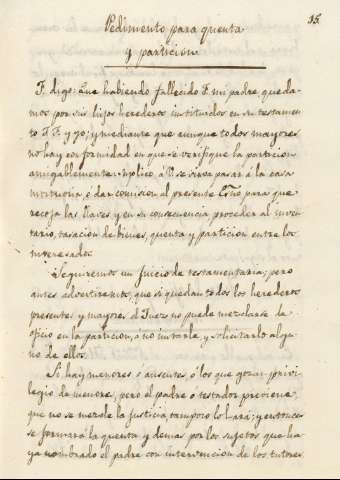 35.
Pedimento para quenta
y particion
F. digo: Que habiendo fallecido F. mi padre, queda-
mos por sus hijos herederos instituidos en su testamen-
to F. F. y yo; y mediante que aunque todos mayores
no hay conformidad en que se verifique la particion
amigablemente: suplico á V. se sirva pasar á la casa
mortuoria, ó dar comision al presente Esno para que
recoja las llaves y en su consecuencia proceder al inven-
tario, tasacion de bienes, quenta y particion entre los
interesados.
Seguiremos un Juicio de testamentaria; pero
antes advertiremos, que si quedan todos los herederos
presentes y mayores el Juez no puede mezclarse de
oficio en la particion, ó no instarle, y solicitarlo algu-
no de ellos.
Si hay menores ó ausentes, ó los que gozan privi-
legio de menores, pero el padre ó testador previene
que no se mezcle la justicia, tampoco lo hará; y entonces
se formará la quenta y demas por los sujetos que ha-
ya nombrado el padre con intervencion de los tutores